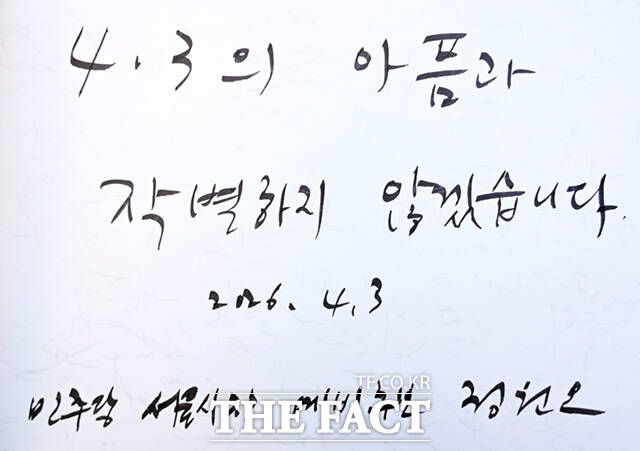 4.3의 아픔과
작별하지 않겠습니다.
2026. 4.3
민주당 서울시장 예비후보 정원오
TF.CO.KR
THE FACT